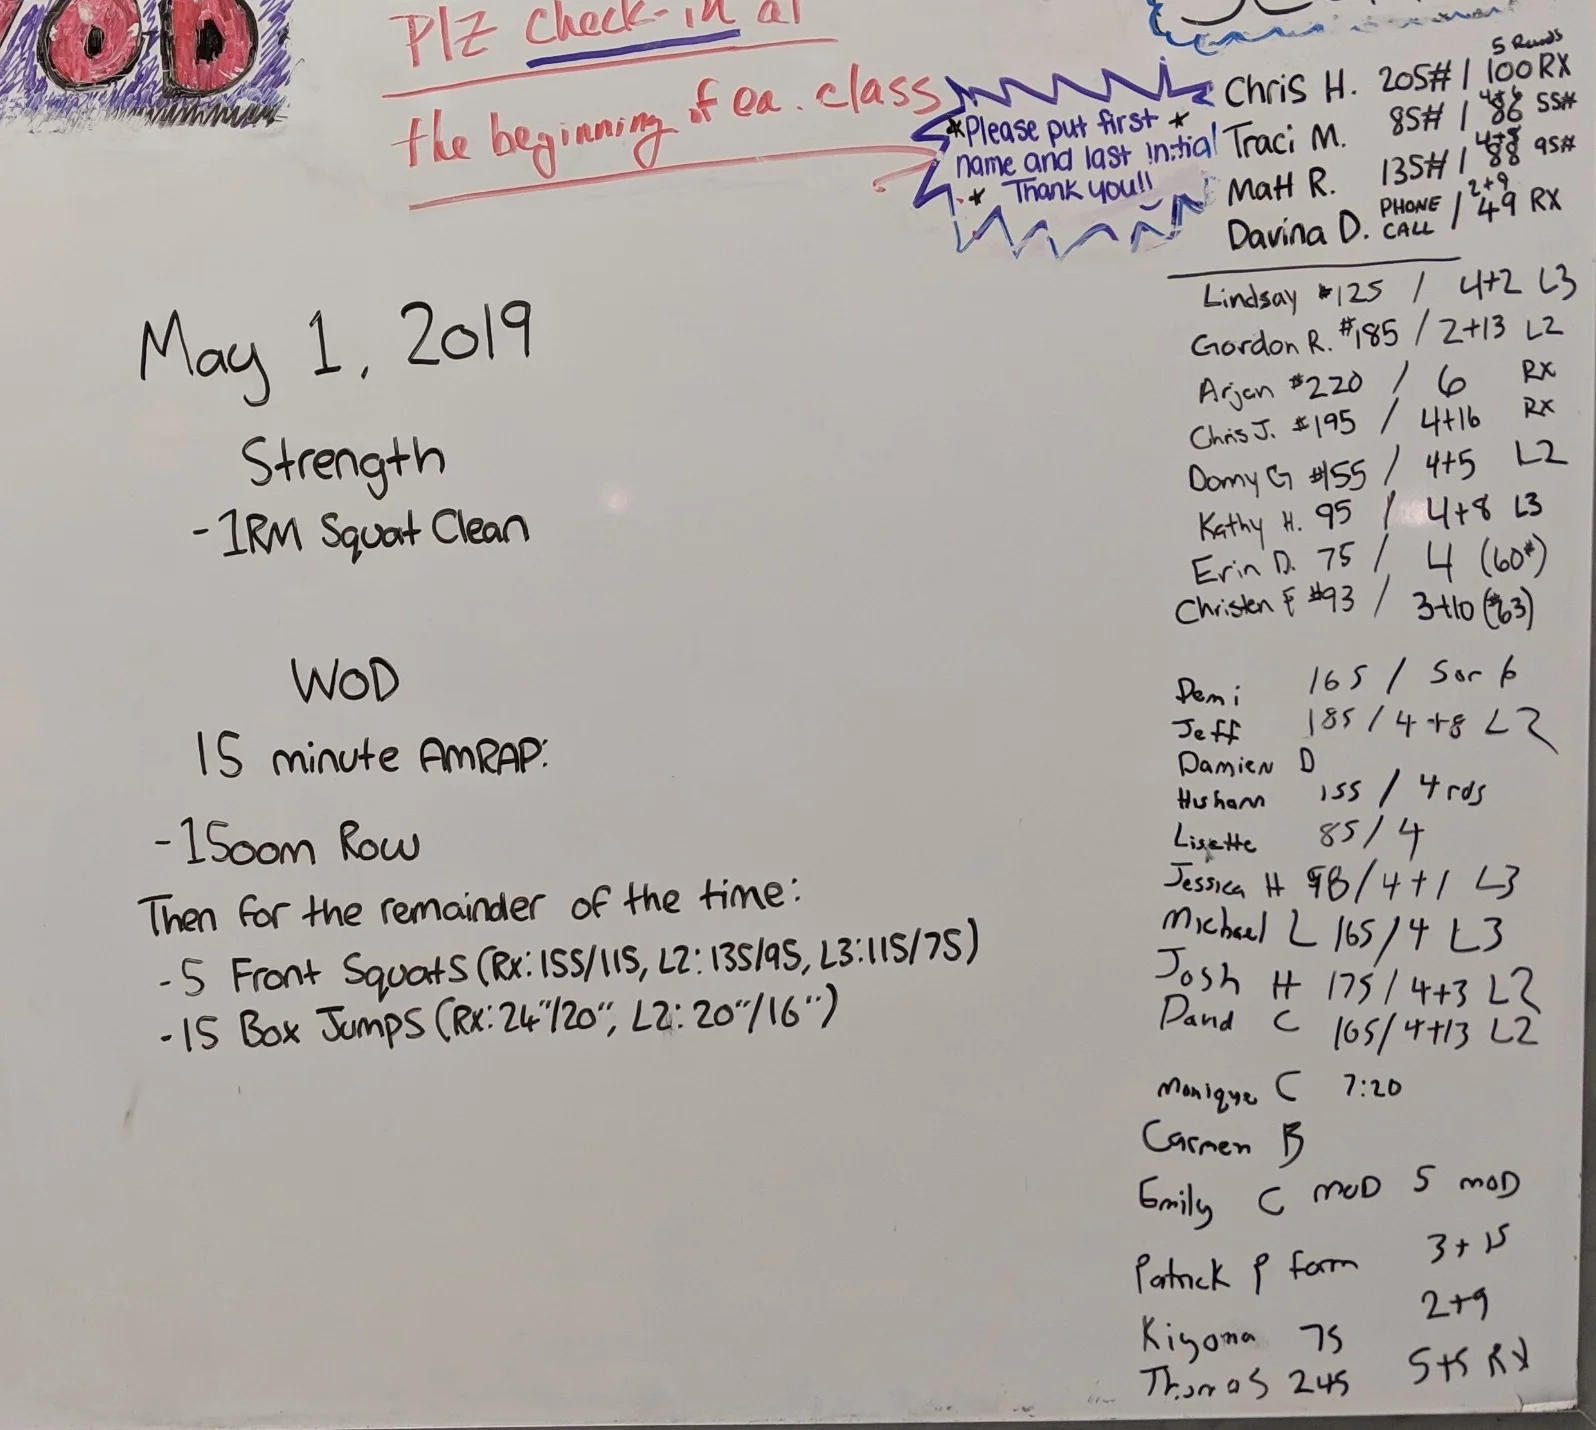 OD
PlZ check-in at
the beginning of ea. class
*Please put first *
name and last initial
* Thank you!!
5 Rounds
Chris H. 205# / 100 RX
4+6
Traci M. 85# / 86 55#
4+8
Matt R. 135# / 88 95#
2+9
Davina D. PHONE CALL / 49 RX
Lindsay #125 / 4+2 L3
Gordon R. #185 / 2+13 L2
Arjan #220 / 6 RX
Chris J. #195 / 4+16 RX
Domy G #155 / 4+5 L2
Kathy H. 95 / 4+8 L3
Erin D. 75 / 4 (60#)
Christen F #93 / 3+10 (#63)
Demi 165 / 5 or 6
Jeff 185 / 4+8 L2
Damien D
Husham 155 / 4 rds
Lisette 85 / 4
Jessica H 98 / 4+1 L3
Michael L 165/4 L3
Josh H 175/4+3 L2
David C 165/4+13 L2
Monique C 7:20
Carmen B
Emily C MOD 5 MOD
Patrick P form 3+15
Kiyoma 75 2+9
Thomas 245 5+5 RX
May 1, 2019
Strength
-1RM Squat Clean
WOD
15 minute AMRAP:
-1500m Row
Then for the remainder of the time:
-5 Front Squats (Rx:155/115, L2:135/95, L3:115/75)
-15 Box Jumps (Rx:24"/20", L2:20"/16")